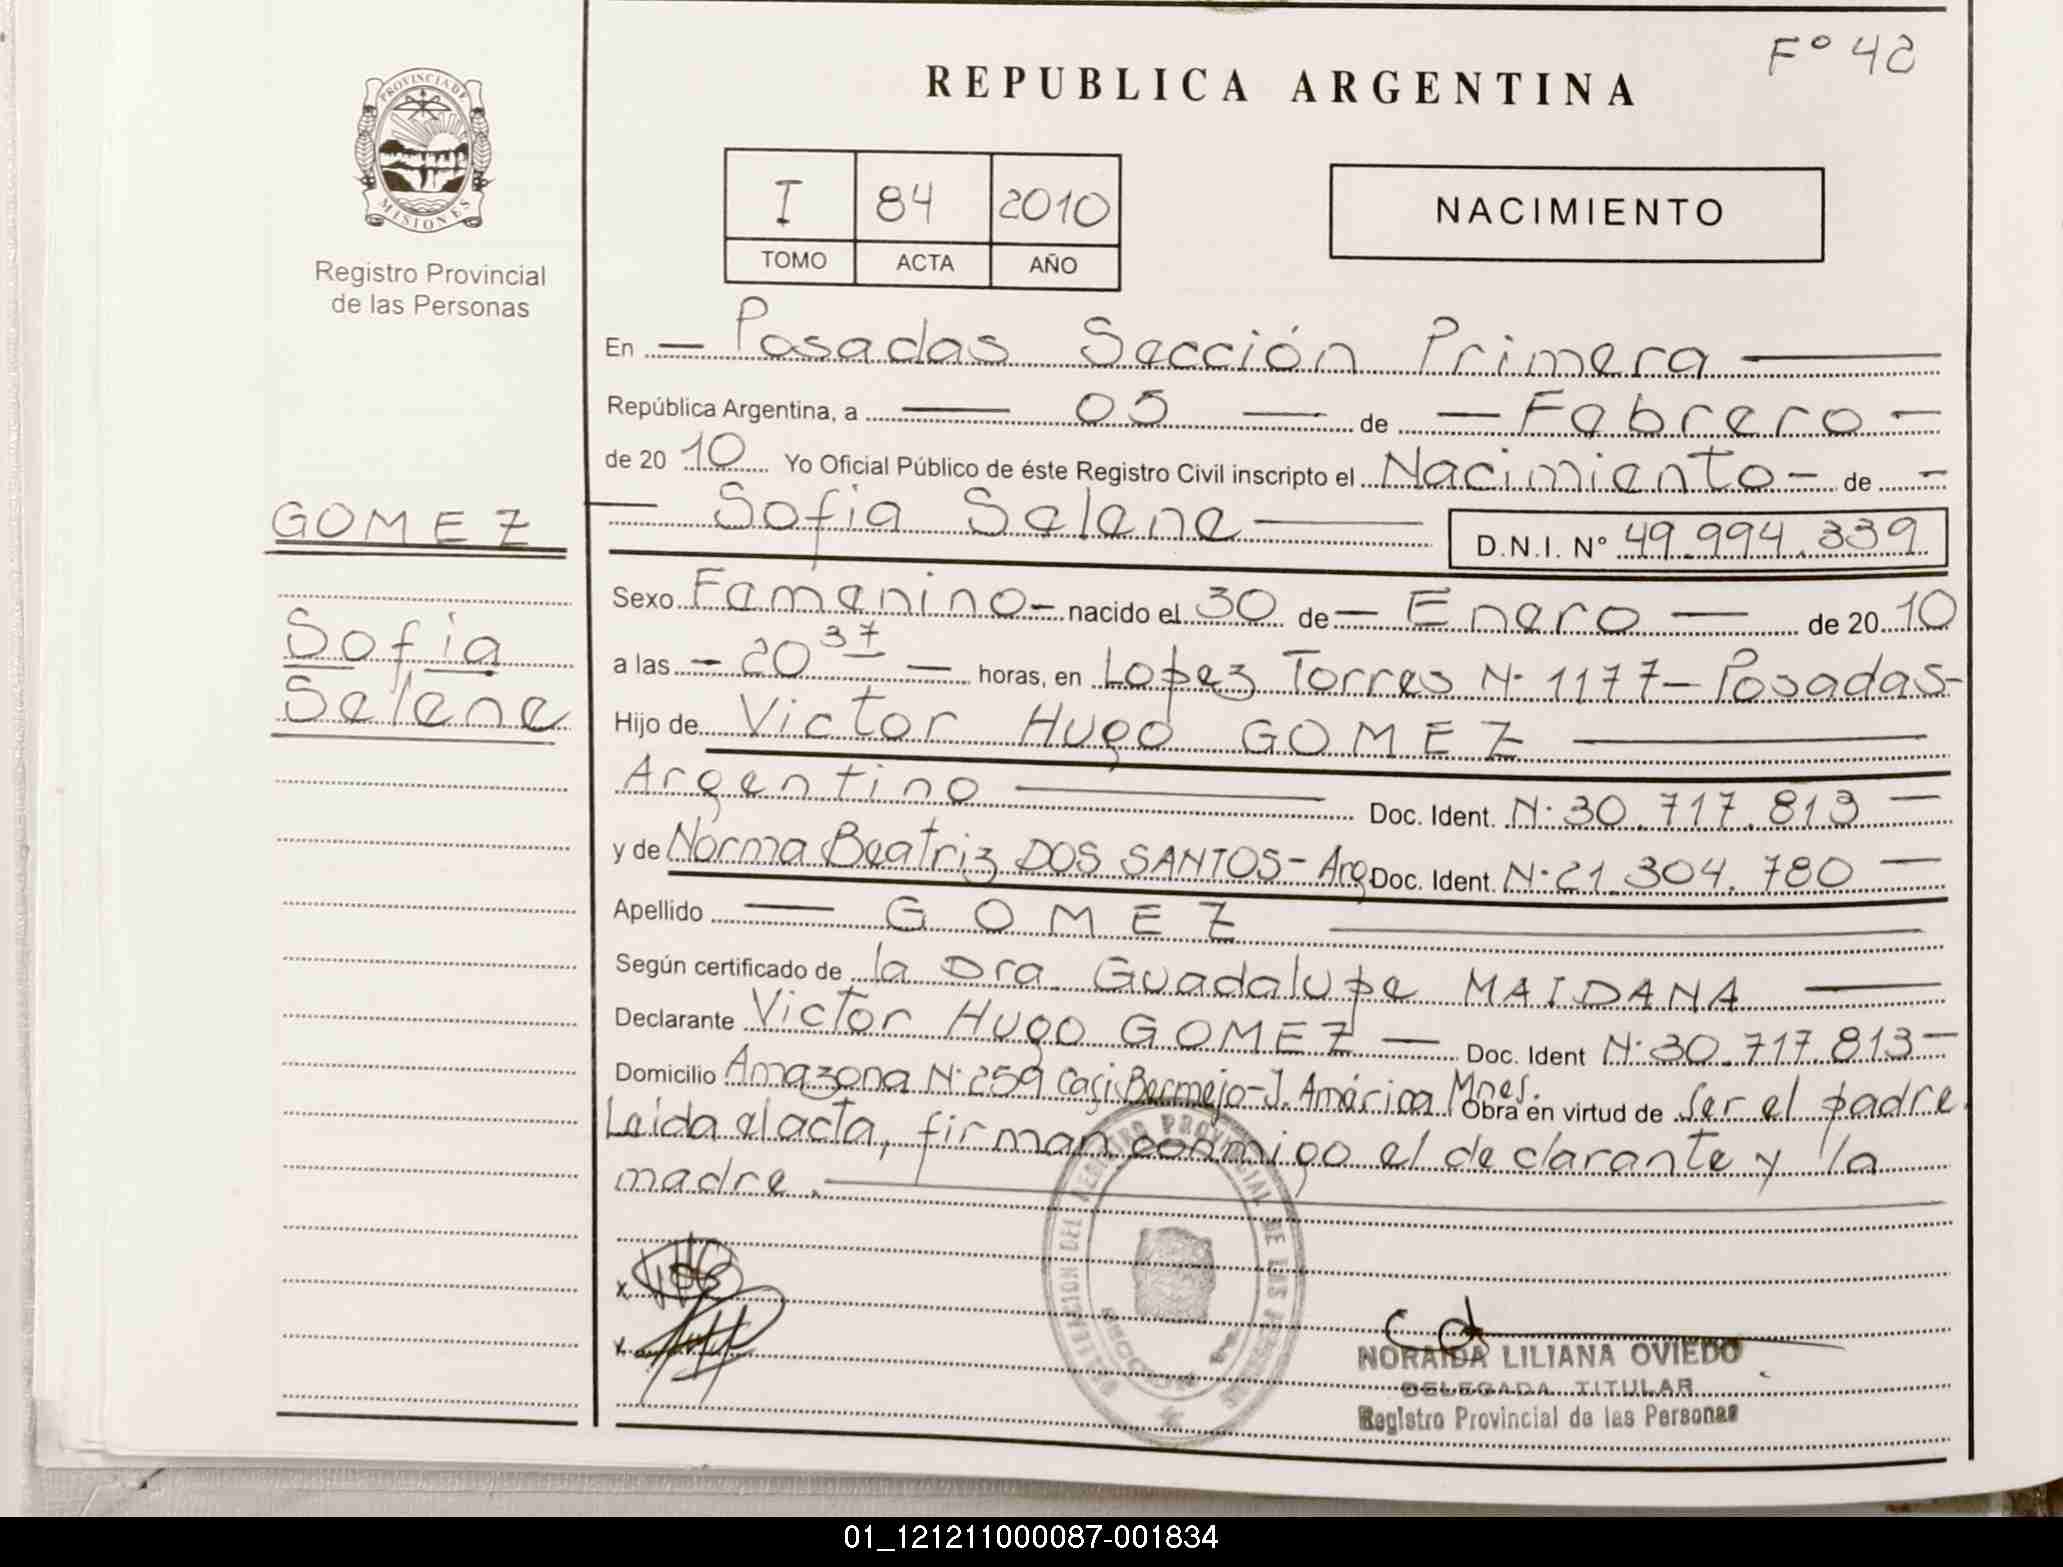 F° 42
REPUBLICA ARGENTINA
PROVINCIA DE MISIONES
Registro Provincial
de las Personas
I 84 2010
TOMO ACTA AÑO
NACIMIENTO
En — Posadas Sección Primera —
República Argentina, a — 05 — de — Febrero —
de 20 10 Yo Oficial Público de éste Registro Civil inscripto el Nacimiento — de —
GOMEZ
— Sofia Selene — D.N.I. N° 49.994.339
Sexo Femenino — nacido el 30 de — Enero — de 20 10
Sofia
Selene
a las — 20 37 — horas, en Lopez Torres N° 1177 — Posadas —
Hijo de Victor Hugo GOMEZ —
Argentino — Doc. Ident. N° 30.717.813 —
y de Norma Beatriz DOS SANTOS — Arg. Doc. Ident. N° 21.304.780 —
Apellido — GOMEZ —
Según certificado de la Dra. Guadalupe MAIDANA —
Declarante Victor Hugo GOMEZ — Doc. Ident N° 30.717.813 —
Domicilio Amazona N° 259 Casi Bermejo — J. América Mnes. Obra en virtud de Ser el padre.
Leida el acta, firman conmigo el declarante y la
madre. —
x
x
REGISTRO PROVINCIAL DE LAS PERSONAS
NORAIDA LILIANA OVIEDO
DELEGADA TITULAR
Registro Provincial de las Personas
01_121211000087-001834